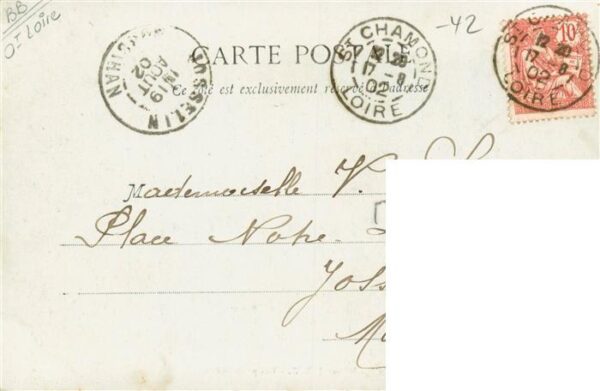 BB
Ot Loire
-42
CARTE POSTALE
Ce côté est exclusivement réservé à l'adresse
JOSSELIN
1M 19
AOUT
02
MORBIHAN
ST CHAMOND
12 20
17 - 8
02
LOIRE
10
12 20
17 - 8
02
LOIRE
Mademoiselle V.
Place Notre-
Joss
M